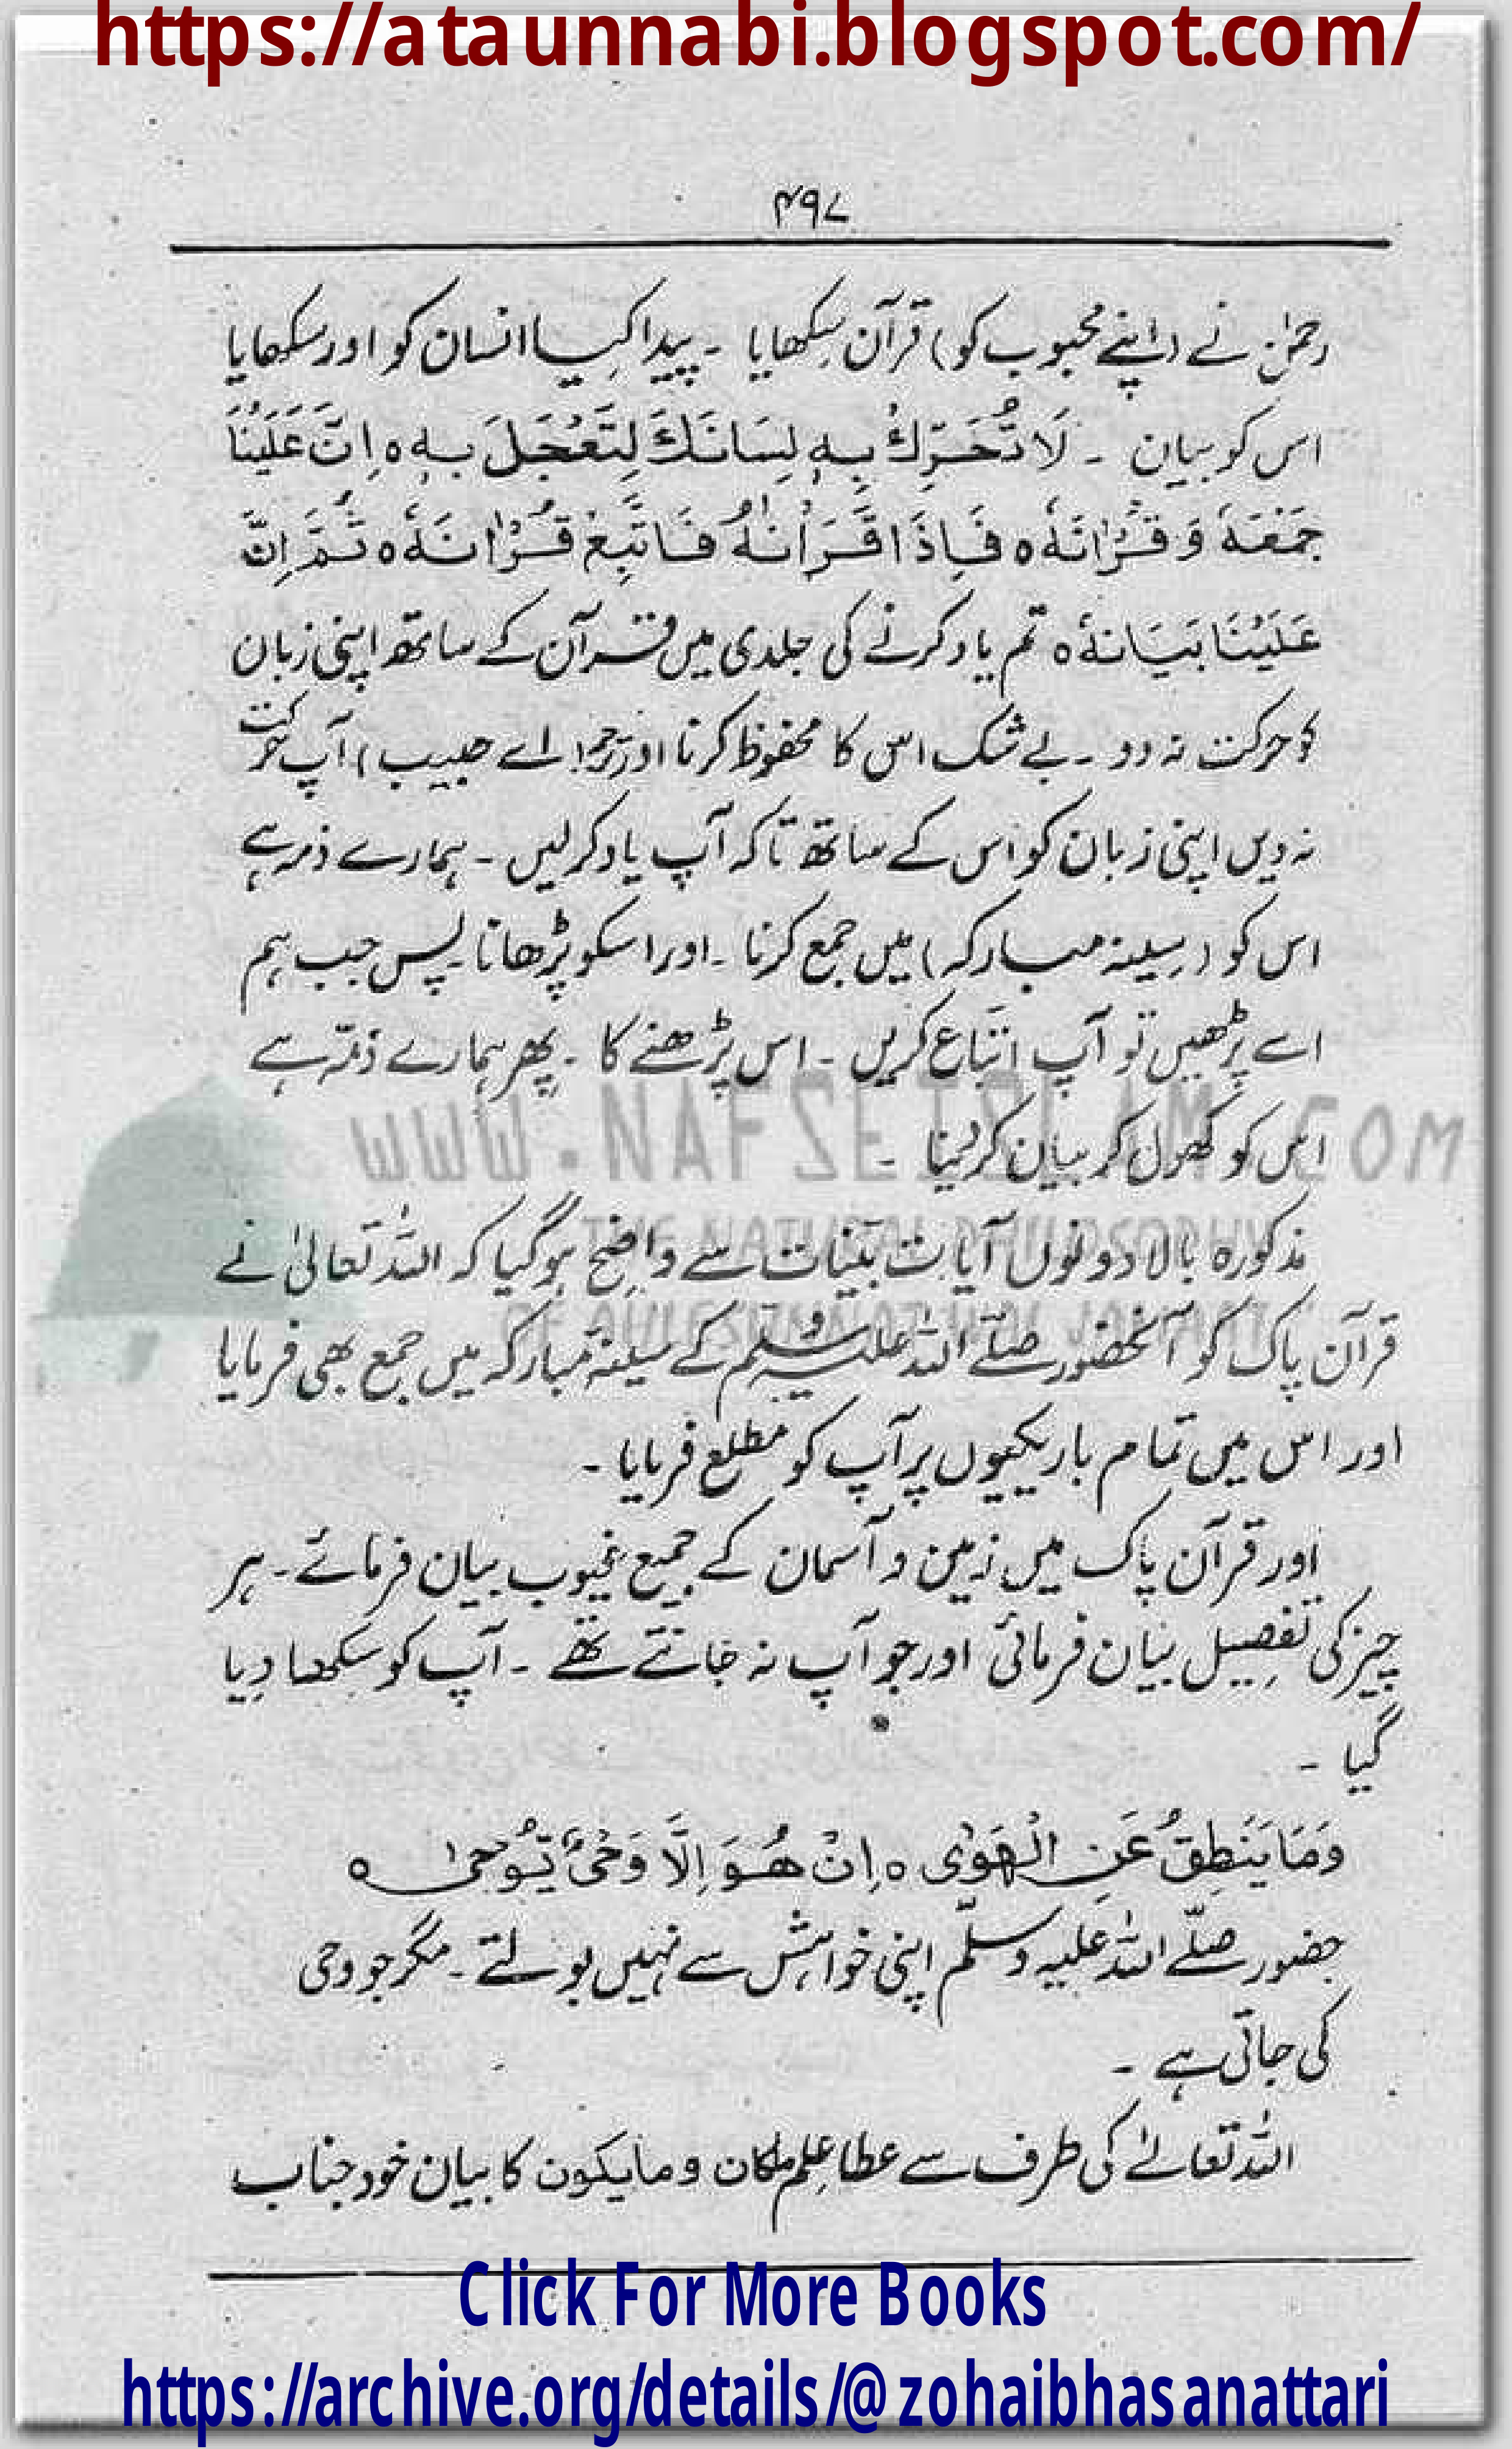 https://ataunnabi.blogspot.com/
۴۹۷
رحمٰن نے (اپنے محبوب کو) قرآن سکھایا ۔ پیدا کیا انسان کو اور سکھایا
اس کو بیان ۔ لَا تُحَرِّكْ بِهٖ لِسَانَكَ لِتَعْجَلَ بِهٖ ه اِنَّ عَلَيْنَا
جَمْعَهٗ وَ قُرْاٰنَهٗ ه فَاِذَا قَرَاْنٰهُ فَاتَّبِعْ قُرْاٰنَهٗ ه ثُمَّ اِنَّ
عَلَيْنَا بَيَانَهٗ ه تم یاد کرنے کی جلدی میں قرآن کے ساتھ اپنی زبان
کو حرکت نہ دو ۔ بے شک اس کا محفوظ کرنا اور ترجمہ! اے حبیب) آپ حرکت
نہ دیں اپنی زبان کو اس کے ساتھ تاکہ آپ یاد کرلیں ۔ ہمارے ذمہ ہے
اس کو (سینہ مبارکہ) میں جمع کرنا ۔ اور اسکو پڑھانا۔ پس جب ہم
اسے پڑھیں تو آپ اتباع کریں ۔ اس پڑھنے کا ۔ پھر ہمارے ذمّہ ہے
اس کو کھول کر بیان کر دینا ۔
WWW.NAFSEISLAM.COM
THE NATURAL PHILOSOPHY
OF AHLESUNNAT WAL JAMAAT
مذکورہ بالا دونوں آیات بیّنات سے واضح ہوگیا کہ اللہ تعالیٰ نے
قرآن پاک کو آنحضور صلّے اللہ علیہ وسلم کے سینۂ مبارکہ میں جمع بھی فرمایا
اور اس میں تمام باریکیوں پر آپ کو مطلع فرمایا ۔
اور قرآن پاک میں زمین و آسمان کے جمیع غیوب بیان فرمائے ۔ ہر
چیز کی تفصیل بیان فرمائی اور جو آپ نہ جانتے تھے ۔ آپ کو سکھا دیا
گیا ۔
وَمَا يَنْطِقُ عَنِ الْهَوٰى ه اِنْ هُوَ اِلَّا وَحْىٌ يُّوْحٰى ه
حضور صلّے اللہ علیہ وسلّم اپنی خواہش سے نہیں بولتے ۔ مگر جو وحی
کی جاتی ہے ۔
اللہ تعالےٰ کی طرف سے عطا علم ماکان و مایکون کا بیان خود جناب
Click For More Books
https://archive.org/details/@zohaibhasanattari